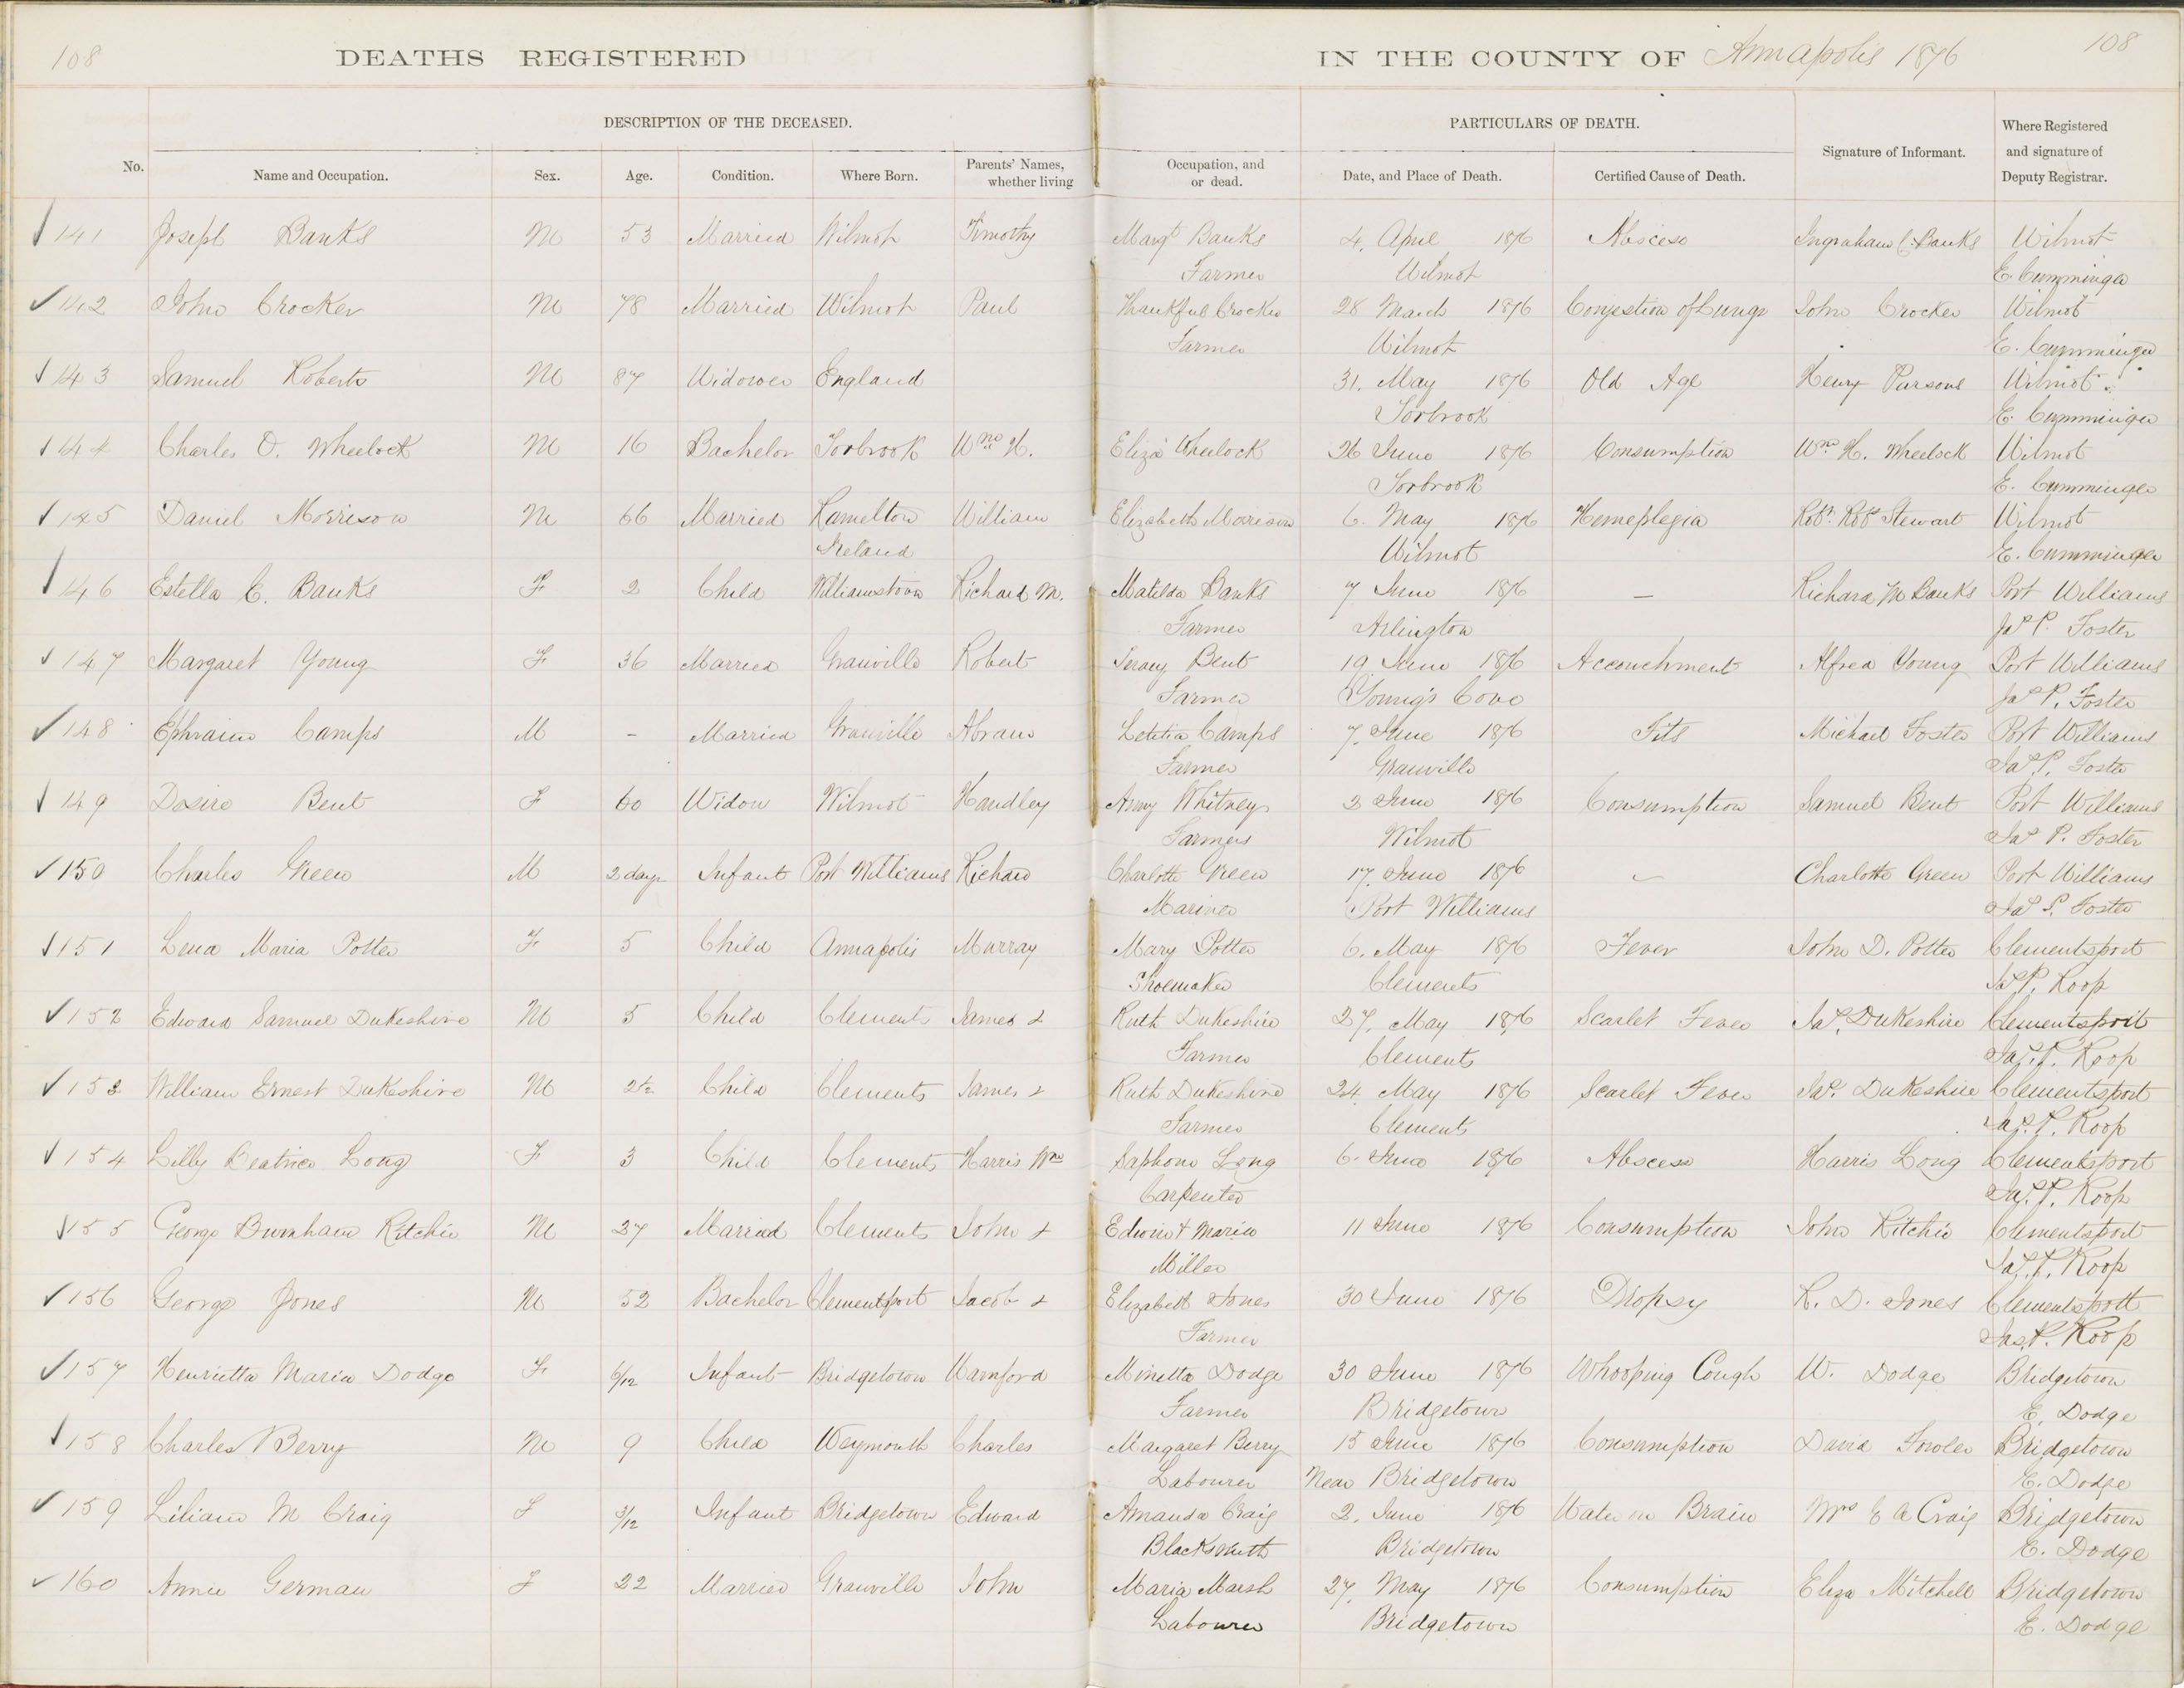 108 DEATHS REGISTERED IN THE COUNTY OF Annapolis 1876 108
DESCRIPTION OF THE DECEASED. PARTICULARS OF DEATH.
No. Name and Occupation. Sex. Age. Condition. Where Born. Parents' Names, whether living Occupation, and or dead. Date, and Place of Death. Certified Cause of Death. Signature of Informant. Where Registered and signature of Deputy Registrar.
141 Joseph Banks M 53 Married Wilmot Timothy Margt Banks 4. April 1876 Abscess Ingraham C. Banks Wilmot
Farmer Wilmot E. Cumminger
142 John Crocker M 78 Married Wilmot Paul Thankful Crocker 28 March 1876 Conjestion of Lungs John Crocker Wilmot
Farmer Wilmot E. Cumminger
143 Samuel Roberts M 87 Widower England 31. May 1876 Old Age Henry Parsons Wilmot
Torbrook E. Cumminger
144 Charles O. Wheelock M 16 Bachelor Torbrook Wm H. Eliza Wheelock 26 June 1876 Consumption Wm H. Wheelock Wilmot
Torbrook E. Cumminger
145 Daniel Morrison M 66 Married Ramelton William Elizabeth Morrison 6. May 1876 Hemeplegia Robt. Robt Stewart Wilmot
Ireland Wilmot E. Cumminger
146 Estella C. Banks F 2 Child Williamstown Richard M. Matilda Banks 7 June 1876 — Richard M Banks Port Williams
Farmer Arlington Jas P. Foster
147 Margaret Young F 36 Married Granville Robert Bent 19 June 1876 Accouchment Alfred Young Port Williams
Farmer Young's Cove Jas P. Foster
148 Ephraim Camps M - Married Granville Abram Letitia Camps 7. June 1876 Fits Michael Foster Port Williams
Farmer Granville Jas P. Foster
149 Desire Bent F 60 Widow Wilmot Handley Amy Whitney 2 June 1876 Consumption Samuel Bent Port Williams
Farmers Wilmot Jas P. Foster
150 Charles Green M 2 days Infant Port Williams Richard Charlotte Green 17. June 1876 — Charlotte Green Port Williams
Mariner Port Williams Jas P. Foster
151 Lena Maria Potter F 5 Child Annapolis Murray Mary Potter 6. May 1876 Fever John D. Potter Clementsport
Shoemaker Clements Jas P. Roop
152 Edward Samuel Dukeshire M 5 Child Clements James & Ruth Dukeshire 27. May 1876 Scarlet Fever Jas. Dukeshire Clementsport
Farmer Clements Jas. P. Roop
153 William Ernest Dukeshire M 2½ Child Clements James & Ruth Dukeshire 24. May 1876 Scarlet Fever Jas. Dukeshire Clementsport
Farmer Clements Jas. P. Roop
154 Lilly Beatrice Long F 3 Child Clements Harris Wm Saphona Long 6. June 1876 Abscess Harris Long Clementsport
Carpenter Jas. P. Roop
155 George Burnham Ritchie M 27 Married Clements John & Edwin & Maria 11 June 1876 Consumption John Ritchie Clementsport
Miller Jas. P. Roop
156 George Jones M 52 Bachelor Clementsport Jacob & Elizabeth Jones 30 June 1876 Dropsy R. D. Jones Clementsport
Farmer Jas. P. Roop
157 Henrietta Maria Dodge F 6/12 Infant Bridgetown Warnford Minetta Dodge 30 June 1876 Whooping Cough W. Dodge Bridgetown
Farmer Bridgetown E. Dodge
158 Charles Berry M 9 Child Weymouth Charles Margaret Berry 15 June 1876 Consumption David Fowler Bridgetown
Labourer Near Bridgetown E. Dodge
159 Lilian M Craig F 3/12 Infant Bridgetown Edward Amanda Craig 2. June 1876 Water on Brain Mrs E A Craig Bridgetown
Blacksmith Bridgetown E. Dodge
160 Annie German F 22 Married Granville John Maria Marsh 27. May 1876 Consumption Eliza Mitchell Bridgetown
Labourer Bridgetown E. Dodge